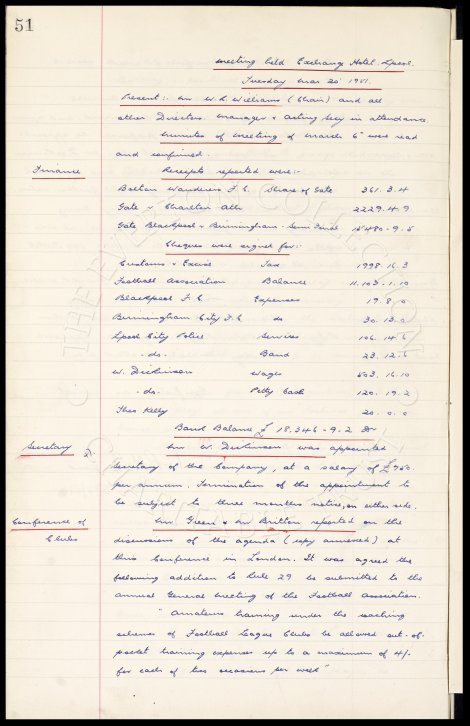 51
Meeting held Exchange Hotel, Lpool.
Tuesday Mar 20' 1951.
Present:- Mr W. R. Williams (Chair) and all
other Directors. Manager & Acting Secy in attendance
Minutes of Meeting of March 6" were read
and confirmed.
Finance Receipts reported were:-
Bolton Wanderers F.C. Share of Gate 361. 3. 4
Gate v Charlton Ath 2229. 4. 9
Gate, Blackpool v Birmingham. Semi Final 15480 - 9. 6
Cheques were signed for:-
Customs & Excise Tax 1998. 16. 3
Football Association Balance 11.103 - 1. 10
Blackpool F.C. Expenses 19. 8. 0
Birmingham City F.C. do 30. 13. 0
Lpool City Police Services 106. 14. 6
- do. Band 23. 12. 6
W. Dickinson Wages 503. 16. 10
- do. Petty Cash 120. 19. 2
Theo Kelly 20. 0. 0
Bank Balance £ 18,346 - 9. 2 Dr
Secretary Mr W. Dickinson was appointed
Secretary of the Company, at a salary of £750.
per annum. Termination of the appointment to
be subject to three months notice, on either side.
Conference of Mr Green & Mr Britton reported on the
Clubs discussions of the agenda (copy annexed) at
this Conference in London. It was agreed the
following addition to Rule 29 be submitted to the
Annual General Meeting of the Football Association.
" Amateurs training under the coaching
schemes of Football League Clubs be allowed out-of-
pocket training expenses up to a maximum of 4/-
for each of two occasions per week"
THE EVERTON COLLECTION